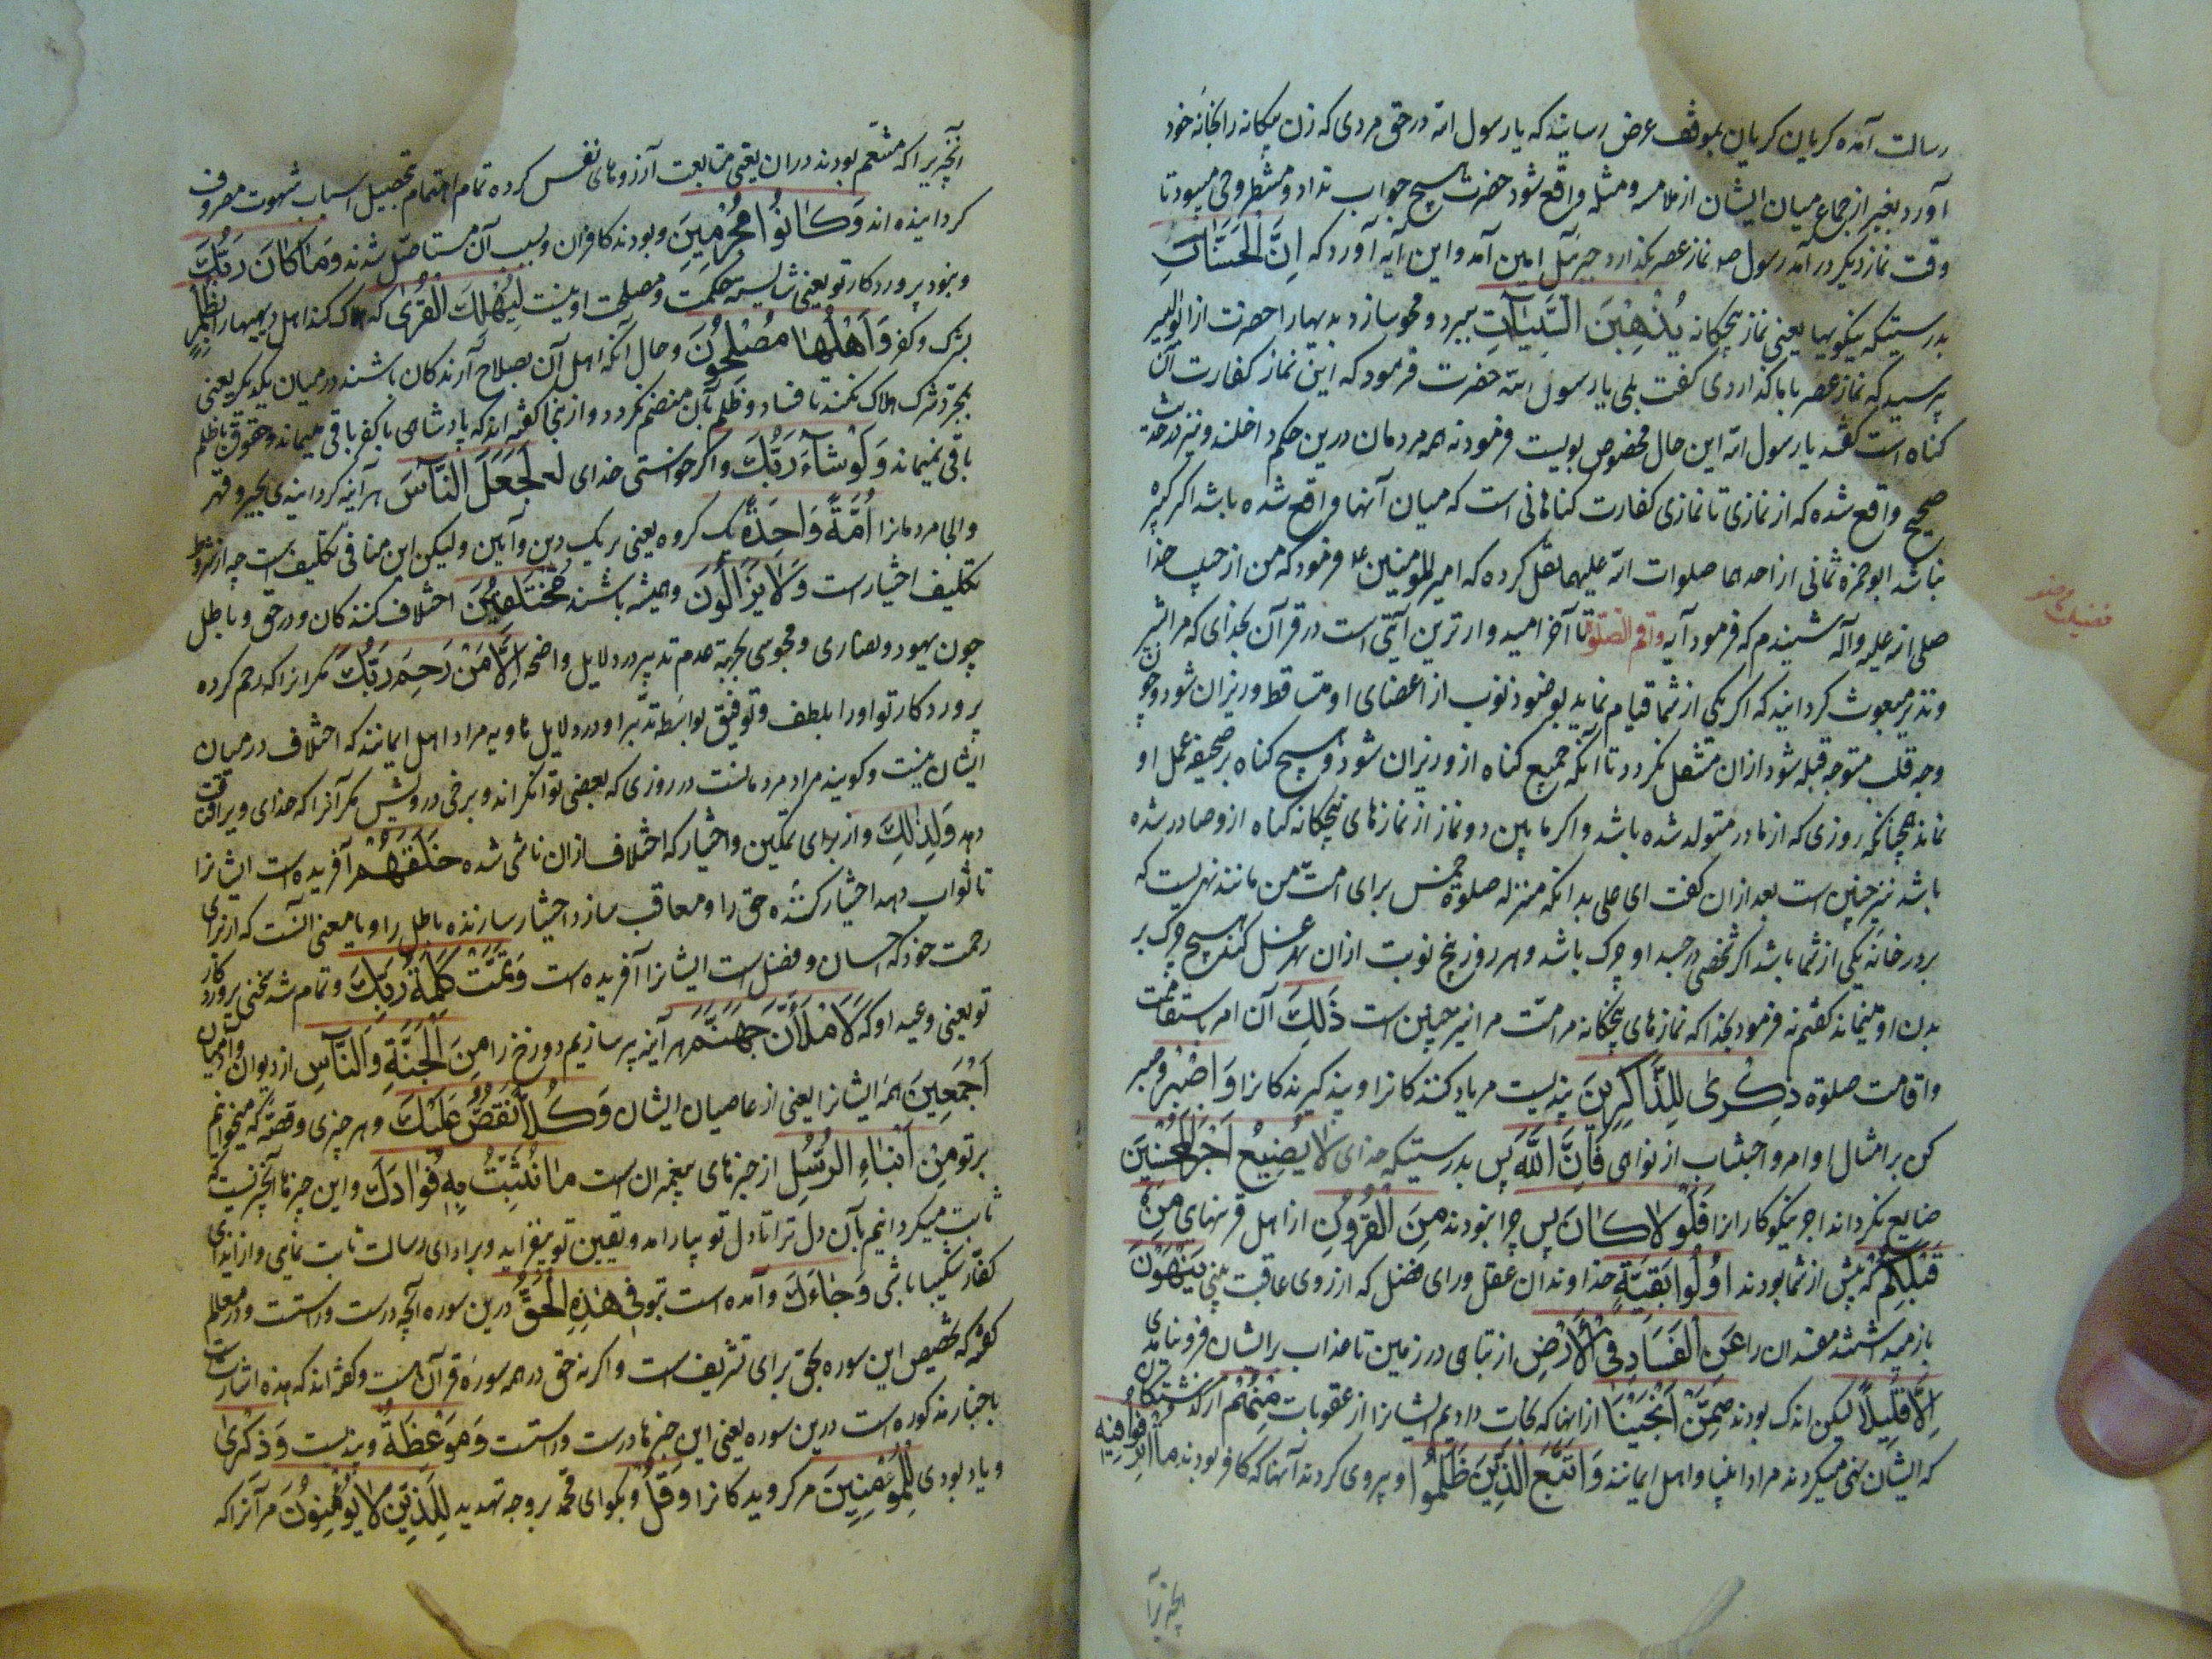 رسالت آمده کریان کریان بموقف عرض رسانید که یا رسول الله در حق مردی که زن بیکانه را بخانه خود
آورد بغیر از جماع میان ایشان از ملامسه و مثله واقع شود حضرت هیچ جواب نداد و منتظر وحی میبود تا
وقت نماز دیکر در آمد رسول صلی نماز عصر بکذارد جبرئیل امین آمد و این آیه آورد که اِنَّ الْحَسَنَاتِ
بدرستیکه نیکوییها یعنی نماز پنجکانه یُذْهِبْنَ السَّیِّئَاتِ میبرد و محو سازد بدیها را حضرت از ابوالیسر
پرسید که نماز عصر با ما کذاردی کفت بلی یا رسول الله حضرت فرمود که این نماز کفارت آن
کناه است کفتند یا رسول الله این حال مخصوص بویست فرمود نه همه مردمان درین حکم داخلند و نیز در حدیث
صحیح واقع شده که از نمازی تا نمازی کفارت کناهانی است که میان آنها واقع شده باشد اکر کبیره
نباشد ابو حمزه ثمالی از احدهما صلوات الله علیهما نقل کرده که امیر المومنین فرمود که من از حبیب خدا
صلی الله علیه وآله شنیدم که فرمود آیه واقم الصلوة تا آخر امیدوار ترین آیتی است در قرآن بخدای که مرا بشیر
و نذیر مبعوث کردانید که اکر یکی از شما قیام نماید بوضو ذنوب از اعضای او متساقط و ریزان شود و چون
وجه قلب متوجه قبله شود ازان منتقل نکردد تا آنکه جمیع کناه ازو ریزان شود و هیچ کناه بر صحیفه عمل او
نماند همچنانکه روزی که از مادر متولد شده باشد و اکر مابین دو نماز از نمازهای پنجکانه کناه ازو صادر شده
باشد نیز چنین است بعد ازان کفت ای علی بدانکه منزله صلوة خمس برای امت من مانند نهریست که
بر در خانه یکی از شما باشد اکر شخصی در جسد او چرک باشد و هر روز پنج نوبت ازان نهر غسل کند هیچ چرک بر
بدن او نمیماند کفتم نه فرمود بخدا که نمازهای پنجکانه مر امت مرا نیز چنین است ذَلِکَ آن امر باستقامت
واقامت صلوة ذِکْرىٰ لِلذَّاکِرِینَ پندیست مر یاد کنندکانرا و پند کیرندکانرا وَاصْبِرْ و صبر
کن بر امتثال اوامر و اجتناب از نواهی فَاِنَّ اللّٰهَ پس بدرستیکه خدای لَا یُضِیعُ اَجْرَ الْمُحْسِنِینَ
ضایع نکرداند اجر نیکوکارانرا فَلَوْلَا کَانَ پس چرا نبودند مِنَ الْقُرُونِ از اهل قرنهای مِنْ
قَبْلِکُمْ که پیش از شما بودند اُولُوا بَقِیَّةٍ خداوندان عقل و رای و فضل که از روی عاقبت بینی یَنْهَوْنَ
باز میداشتند مفسدان را عَنِ الْفَسَادِ فِی الْاَرْضِ از تباهی در زمین تا عذاب بر ایشان فرو نیامدی
اِلَّا قَلِیلاً لیکن اندک بودند مِمَّنْ اَنْجَیْنَا ازانها که نجات دادیم ایشانرا از عقوبات مِنْهُمْ از کذشتکان
که ایشان نهی میکردند مراد انبیا و اهل ایمانند وَاتَّبَعَ الَّذِینَ ظَلَمُوا و پیروی کردند آنها که کافر بودند مَا اُتْرِفُوا فِیهِ
آنچیزیرا
آنچیزیرا که متنعم بودند دران یعنی متابعت آرزوهای نفس کرده تمام اهتمام بتحصیل اسباب شهوت مصروف
کردانیده اند وَکَانُوا مُجْرِمِینَ و بودند کافران و بسبب آن مستاصل شدند وَمَا کَانَ رَبُّکَ
و نبود پروردکار تو یعنی شایسته حکمت و مصلحت او نیست لِیُهْلِکَ الْقُرىٰ که هلاک کند اهل دیهها را بِظُلْمٍ
بشرک و کفر وَاَهْلُهَا مُصْلِحُونَ و حال آنکه اهل آن بصلاح آرندکان باشند در میان یکدیکر یعنی
بمجرد شرک هلاک نکنند تا فساد و ظلم بآن منضم نکردد و از اینجا کفته اند که پادشاهی با کفر باقی میماند و حقوق با ظلم
باقی نمیماند وَلَوْ شَآءَ رَبُّکَ و اکر خواستی خدای لَجَعَلَ النَّاسَ هر آینه کردانیدی بجبر و قهر
والجا مردمانرا اُمَّةً وَاحِدَةً یک کروه یعنی بر یک دین و آیین ولیکن این منافی تکلیف است چه از شروط
تکلیف اختیار است وَلَا یَزَالُونَ و همیشه باشند مُخْتَلِفِینَ اختلاف کنندکان در حق و باطل
چون یهود و نصاری و مجوسی بجهة عدم تدبیر در دلایل واضحه اِلَّا مَنْ رَحِمَ رَبُّکَ مکر انرا که رحم کرده
پروردکار تو اورا بلطف و توفیق بواسطه تدبر او در دلایل هادیه مراد اهل ایمانند که اختلاف در میان
ایشان نیست و کویند مراد مردمانست در روزی که بعضی توانکراند و برخی درویش مکر آنرا که خدای ویرا قناعت
دهد وَلِذٰلِکَ و از برای تمکین و اختیار که اختلاف ازان ناشی شده خَلَقَهُمْ آفریده است ایشانرا
تا ثواب دهد اختیار کننده حق را و معاقب سازد اختیار سازنده باطل را و یا معنی آنست که از برای
رحمت خود که احسان و فضل است ایشانرا آفریده است وَتَمَّتْ کَلِمَةُ رَبِّکَ و تمام شد سخن پروردکار
تو یعنی وعید او که لَاَمْلَاَنَّ جَهَنَّمَ هر آینه پر سازیم دوزخ را مِنَ الْجِنَّةِ وَالنَّاسِ از دیوان و آدمیان
اَجْمَعِینَ همه ایشانرا یعنی از عاصیان ایشان وَکُلًّا نَقُصُّ عَلَیْکَ و هر چیزی و قصه که میخوانیم
بر تو مِنْ اَنْبَاءِ الرُّسُلِ از خبرهای پیغمبران است مَا نُثَبِّتُ بِهِ فُؤَادَکَ و این خبرها آنچیزیست که
ثابت میکردانیم بآن دل ترا تا دل تو بیارامد و یقین تو بیفزاید و بر ادای رسالت ثابت نمای و از ایذای
کفار شکیبا باشی وَجَاءَکَ و آمده است بتو فِی هٰذِهِ الْحَقُّ درین سوره آنچه درست و راستست و در معالم
کفته که تخصیص این سوره بحق برای تشریف است و اکر نه حق در همه سوره قرآن هست و کفته اند که هذه اشارت
باخبار مذکوره است درین سوره یعنی این خبرها درست و راستست وَمَوْعِظَةٌ و پندیست وَذِکْرىٰ
و یادبودی لِلْمُؤْمِنِینَ مر کرویدکانرا وَقُلْ و بکو ای محمد بر وجه تهدید لِلَّذِینَ لَا یُؤْمِنُونَ مر آنرا که